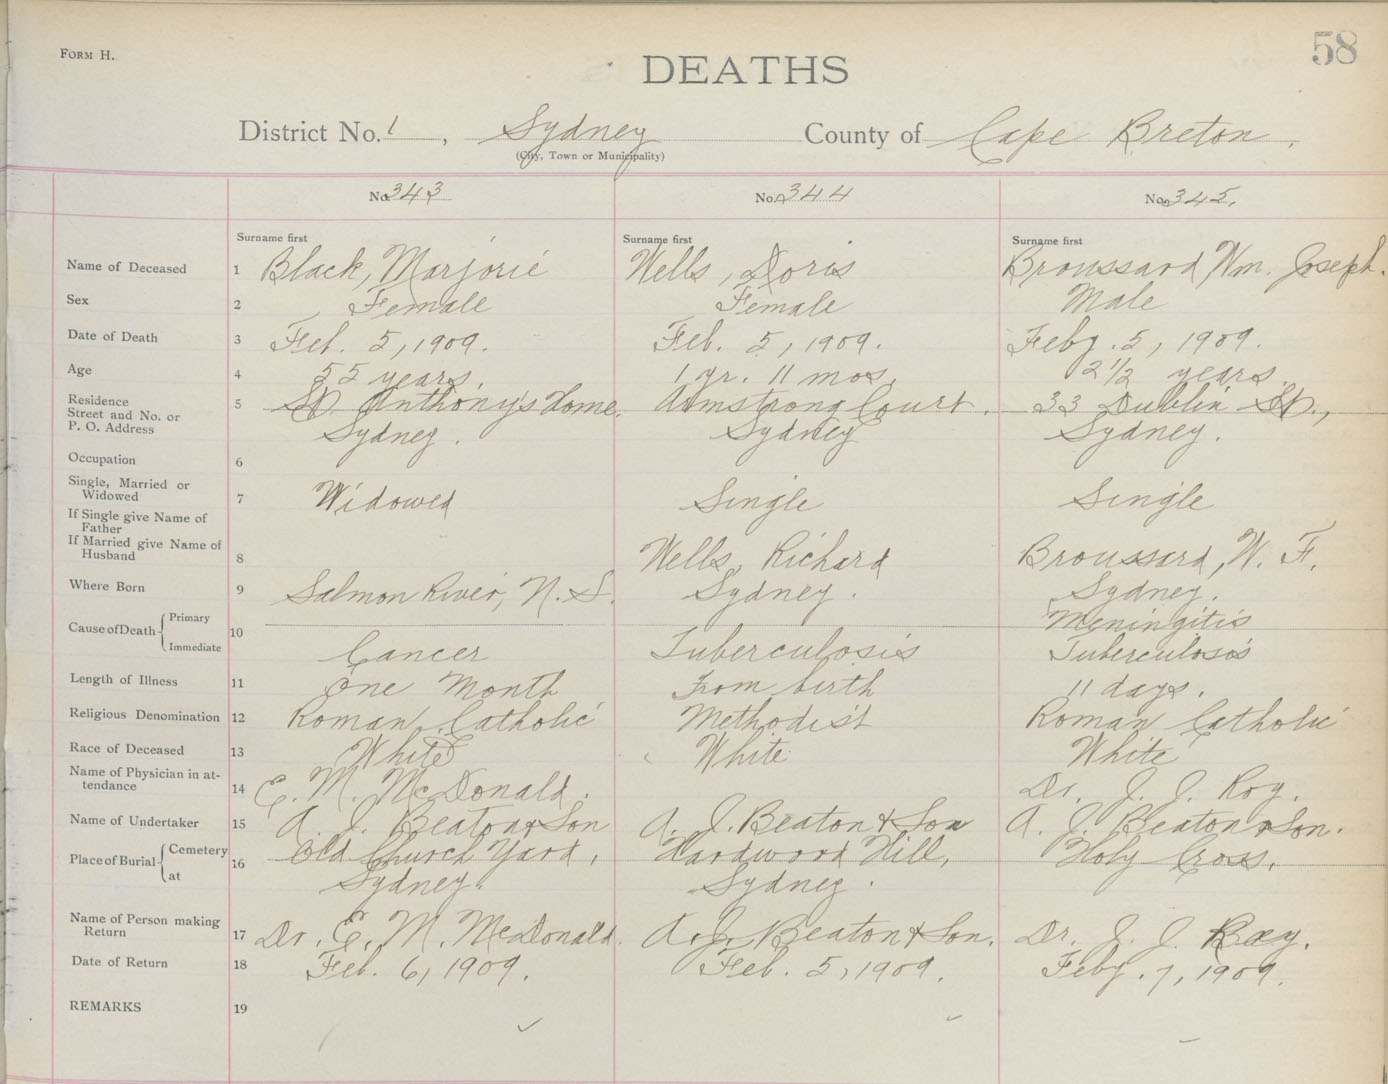 FORM H.
58
DEATHS
District No. 1, Sydney County of Cape Breton.
(City, Town or Municipality)
No. 343 No. 344 No. 345.
Surname first Surname first Surname first
Name of Deceased 1 Black, Marjorie Wells, Doris Broussard Wm. Joseph.
Sex 2 Female Female Male
Date of Death 3 Feb. 5, 1909. Feb. 5, 1909. Feby. 5, 1909.
Age 4 55 years. 1 yr. 11 mos. 2 1/2 years.
Residence
Street and No. or 5 St. Anthony's Home. Armstrong Court. 33 Dublin St.,
P. O. Address Sydney. Sydney Sydney.
Occupation 6
Single, Married or
Widowed 7 Widowed Single Single
If Single give Name of
Father
If Married give Name of
Husband 8 Wells, Richard Broussard, W. F.
Where Born 9 Salmon River, N. S. Sydney. Sydney.
Cause of Death Primary Meningitis
10
Immediate Cancer Tuberculosis Tuberculosis
Length of Illness 11 One Month From birth 11 days.
Religious Denomination 12 Roman Catholic Methodist Roman Catholic
Race of Deceased 13 White White White
Name of Physician in at-
tendance 14 E. M. McDonald. Dr. J. J. Roy.
Name of Undertaker 15 A. J. Beaton & Son A. J. Beaton & Son A. J. Beaton & Son.
Place of Burial Cemetery 16 Old Church Yard, Hardwood Hill, Holy Cross.
at Sydney. Sydney.
Name of Person making
Return 17 Dr. E. M. McDonald. A. J. Beaton & Son. Dr. J. J. Roy.
Date of Return 18 Feb. 6, 1909. Feb. 5, 1909. Feby. 7, 1909.
REMARKS 19